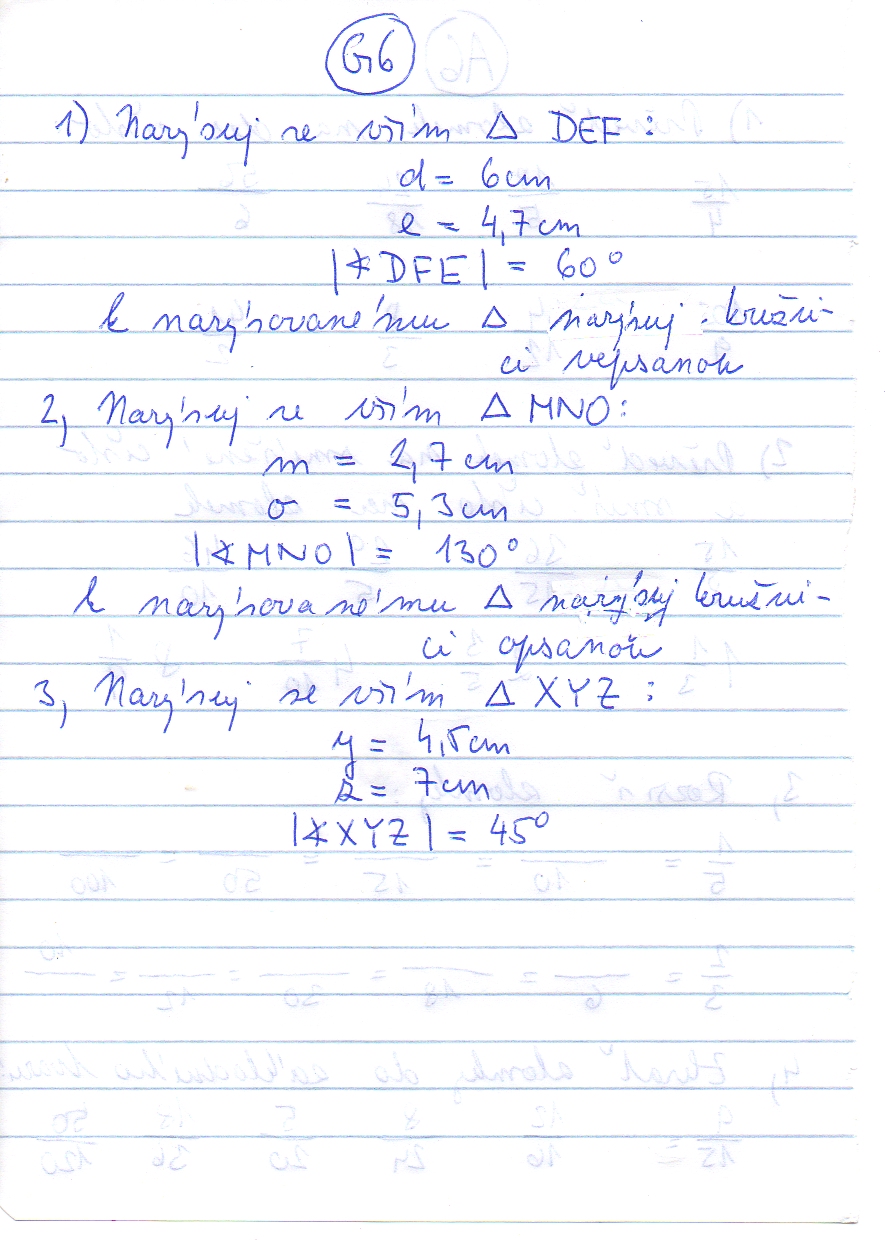 G6
1) Narýsuj se vším △ DEF :
d = 6cm
e = 4,7cm
|∢DFE| = 60°
k narýsovanému △ narýsuj kružni-
ci vepsanou
2, Narýsuj se vším △ MNO:
m = 2,7cm
o = 5,3cm
|∢MNO| = 130°
k narýsovanému △ narýsuj kružni-
ci opsanou
3, Narýsuj se vším △ XYZ :
y = 4,5cm
z = 7cm
|∢XYZ| = 45°